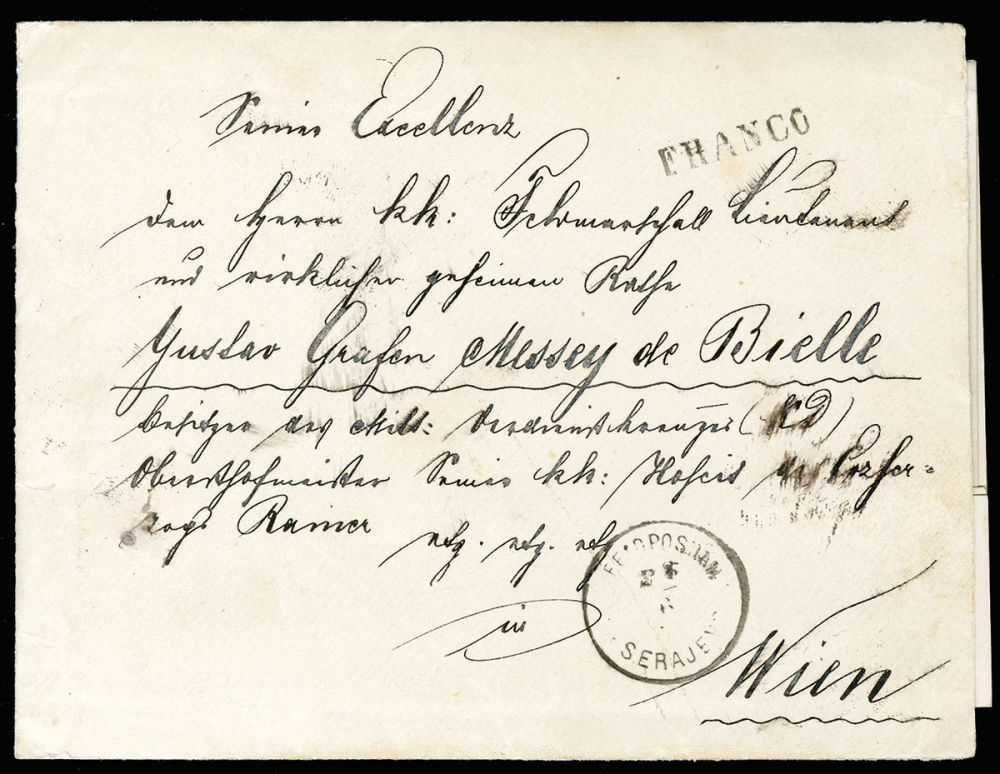 FRANCO
Seiner Excellenz
dem Herrn kk: Feldmarschall Lieutenant
und wirklichen geheimen Rathe
Gustav Grafen Messey de Bielle
Besitzer des Milt: Verdienstkreuzes (KD)
Obersthofmeister Seiner kk: Hoheit des Erzher=
zogs Rainer
etz. etz. etz.
FELDPOSTAMT
SERAJEVO
in
Wien